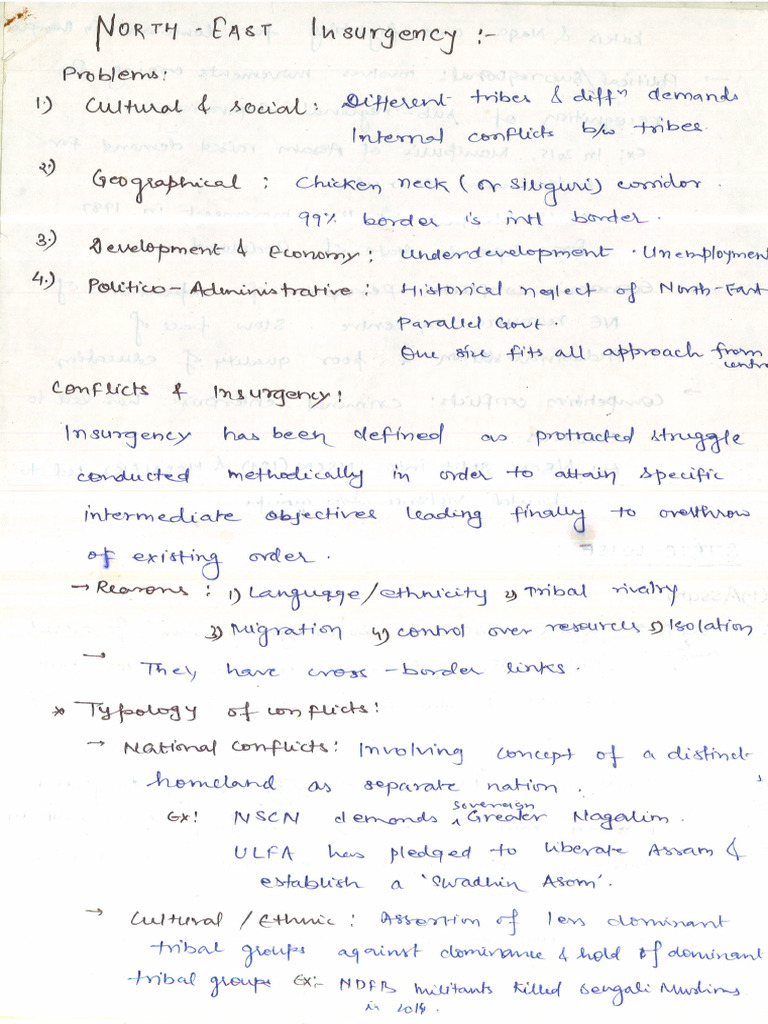 NORTH-EAST Insurgency :-
Problems:
1.) Cultural & social : Different tribes & diffⁿ demands
Internal conflicts b/w tribes.
2.) Geographical : Chicken neck (or Siliguri) corridor.
99% border is intl border.
3.) Development & Economy : Underdevelopment . Unemployment
4.) Politico-Administrative : Historical neglect of North-East
Parallel Govt.
One size fits all approach from
centre
Conflicts & Insurgency:
Insurgency has been defined as protracted struggle
conducted methodically in order to attain specific
intermediate objectives leading finally to overthrow
of existing order.
→ Reasons : 1) Language/ethnicity 2) Tribal rivalry
3) Migration 4) control over resources 5) Isolation
→ They have cross-border links.
* Typology of conflicts:
→ National Conflicts: Involving concept of a distinct
homeland as separate nation.
Ex: NSCN demands sovereign Greater Nagalim.
ULFA has pledged to liberate Assam &
establish a 'Swadhin Asom'.
→ Cultural / Ethnic : Assertion of less dominant
tribal groups against dominance & hold of dominant
tribal groups Ex:- NDFB militants killed Bengali Muslims
in 2014.